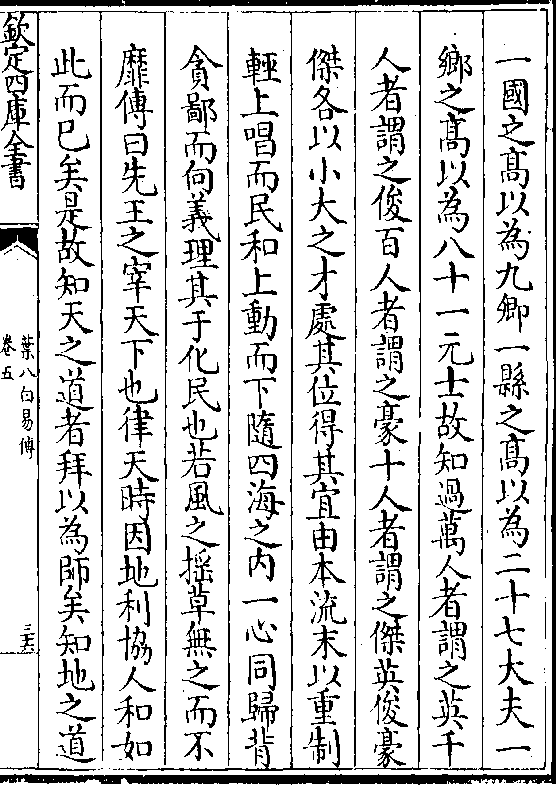 一國之髙以為九卿一縣之髙以為二十七大夫一
鄉之髙以為八十一元士故知過萬人者謂之英千
人者謂之俊百人者謂之豪十人者謂之傑英俊豪
傑各以小大之才處其位得其宜由本流末以重制
輕上唱而民和上動而下隨四海之内一心同歸背
貪鄙而向義理其于化民也若風之揺草無之而不
靡傳曰先王之宰天下也律天時因地利協人和如
此而已矣是故知天之道者拜以為師矣知地之道
欽定四庫全書
葉八白易傳
卷五
三六